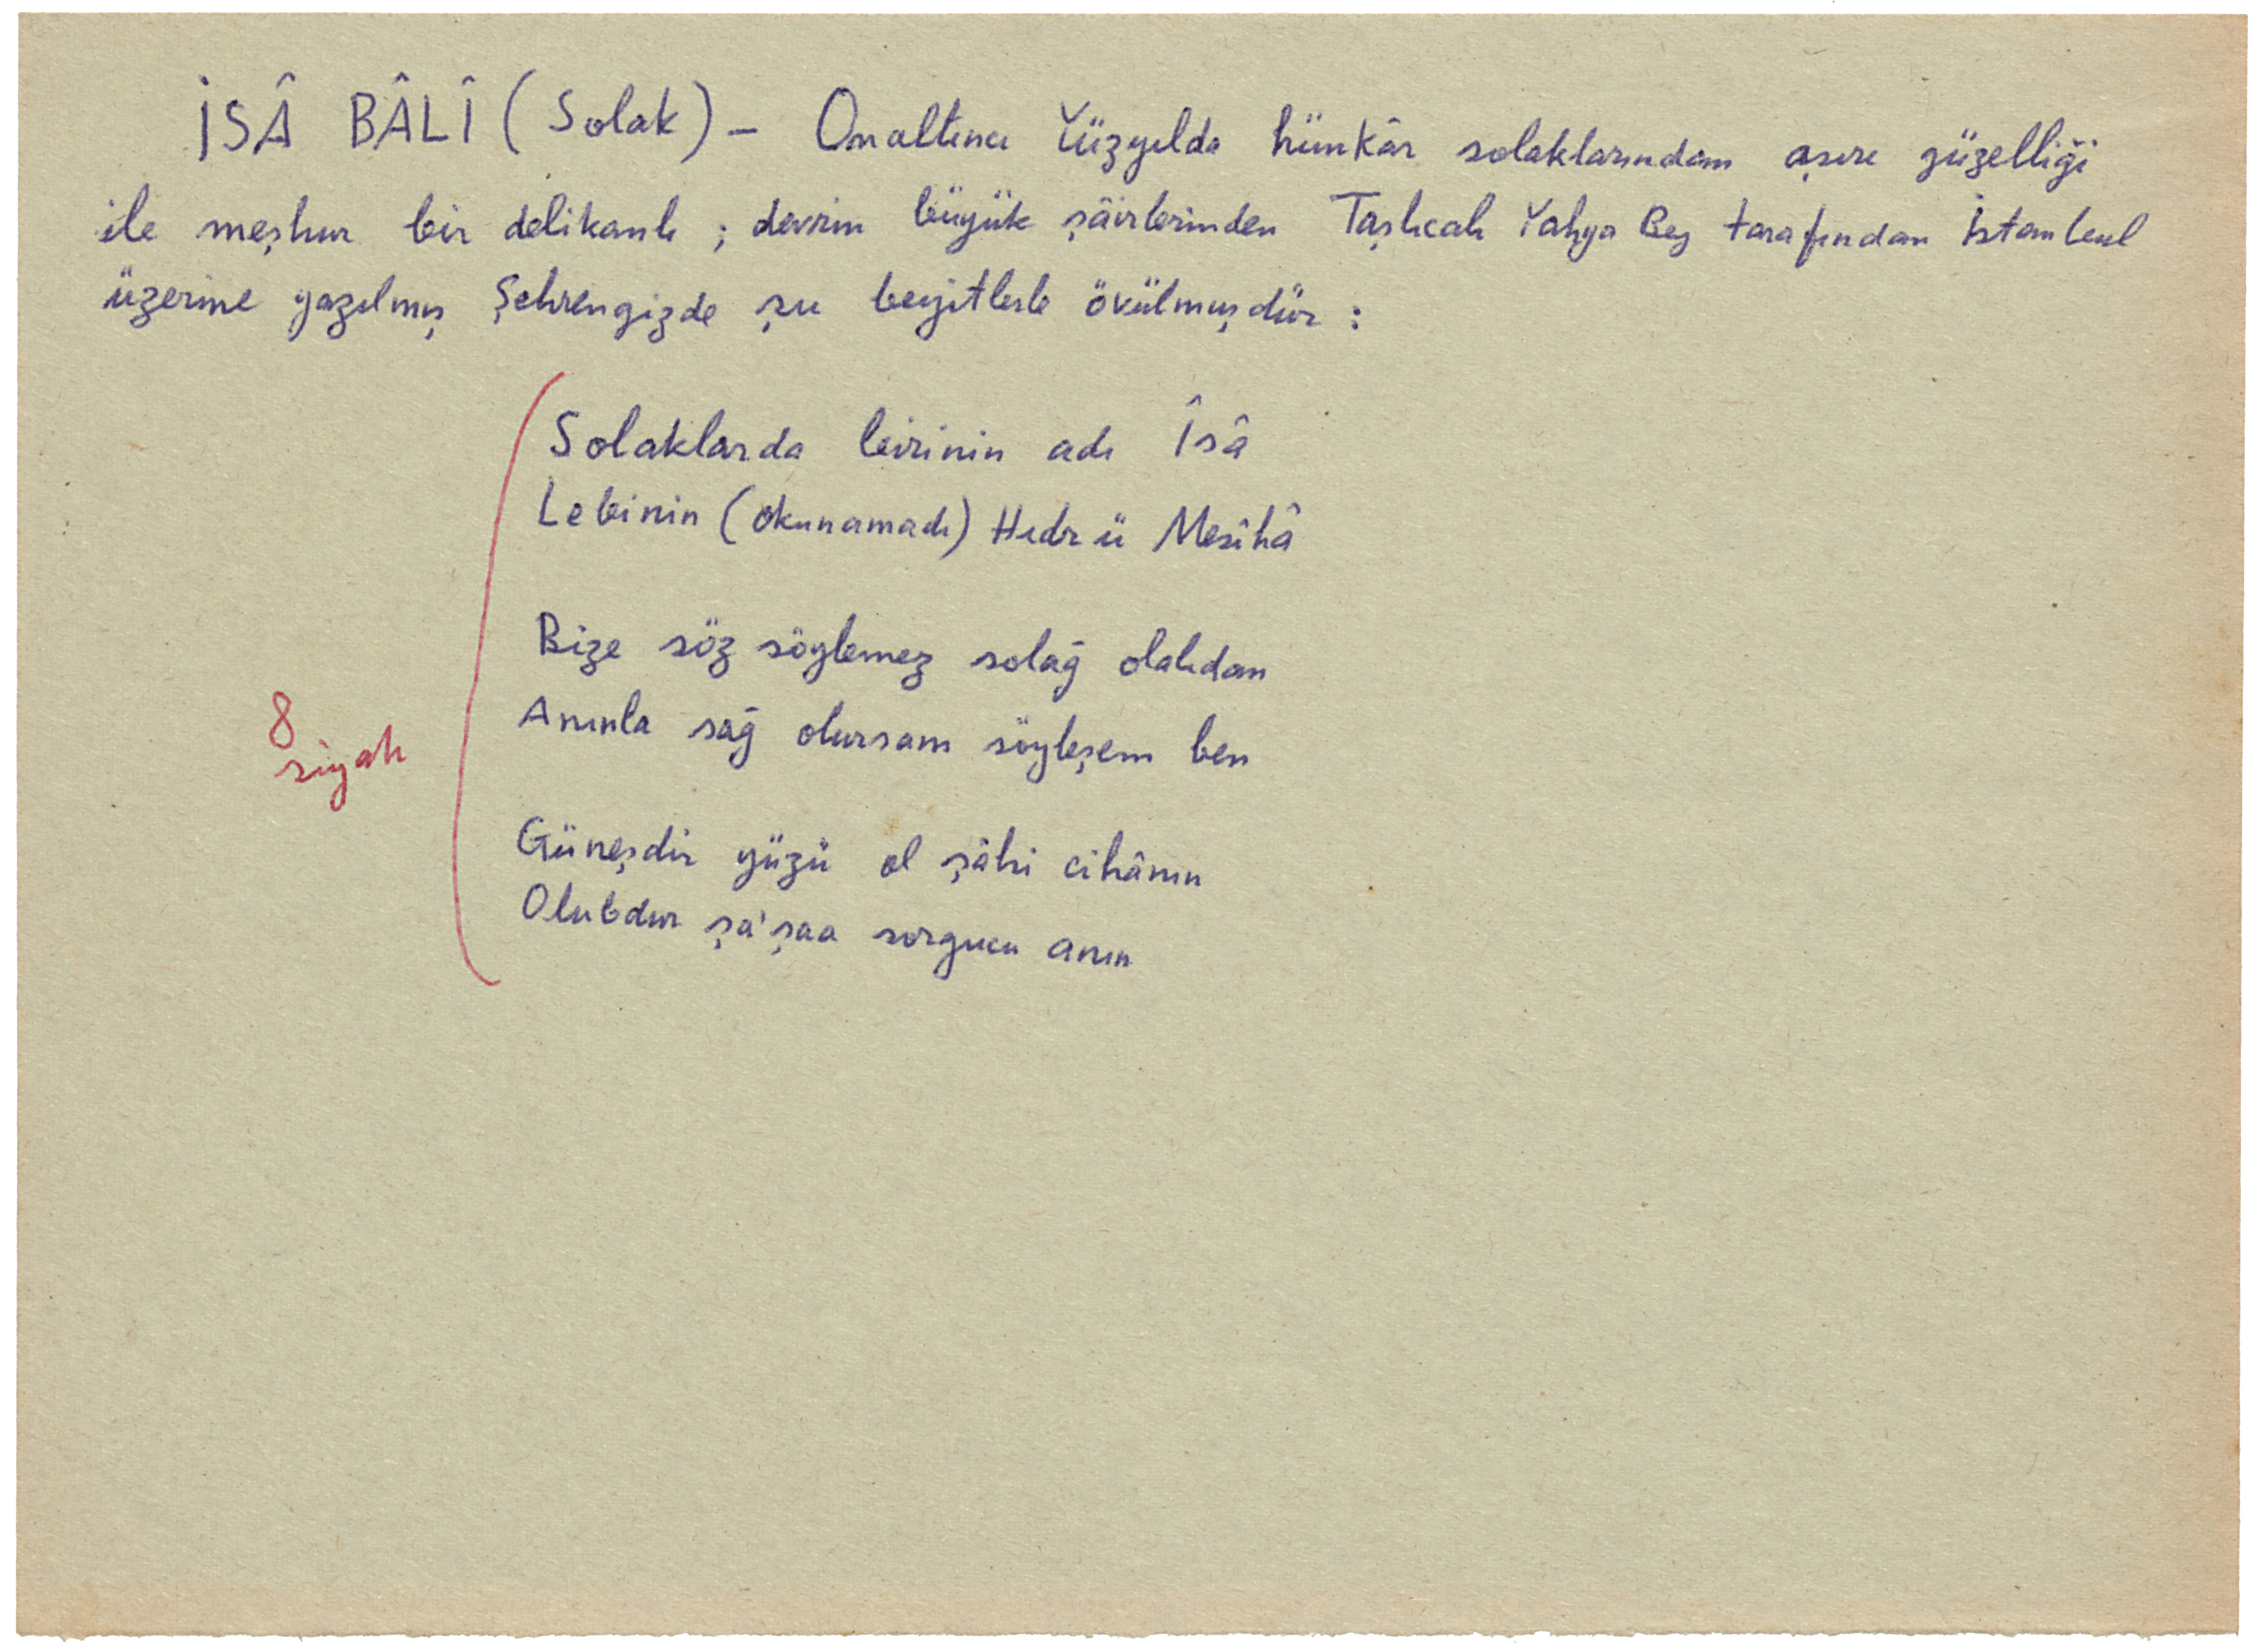 İSÂ BÂLÎ (Solak) – Onaltıncı Yüzyılda hünkâr solaklarından aşırı güzelliği
ile meşhur bir delikanlı ; devrin büyük şâirlerinden Taşlıcalı Yahya Bey tarafından İstanbul
üzerine yazılmış Şehrengizde şu beyitlerle övülmuşdür :
Solaklarda birinin adı Îsâ
Lebinin (okunamadı) Hıdr ü Mesîhâ
Bize söz söylemez solağ olalıdan
Anınla sağ olursam söyleşem ben
8
siyah
Güneşdir yüzü ol şâhi cihânın
Olubdur şa'şaa sorgucu anın